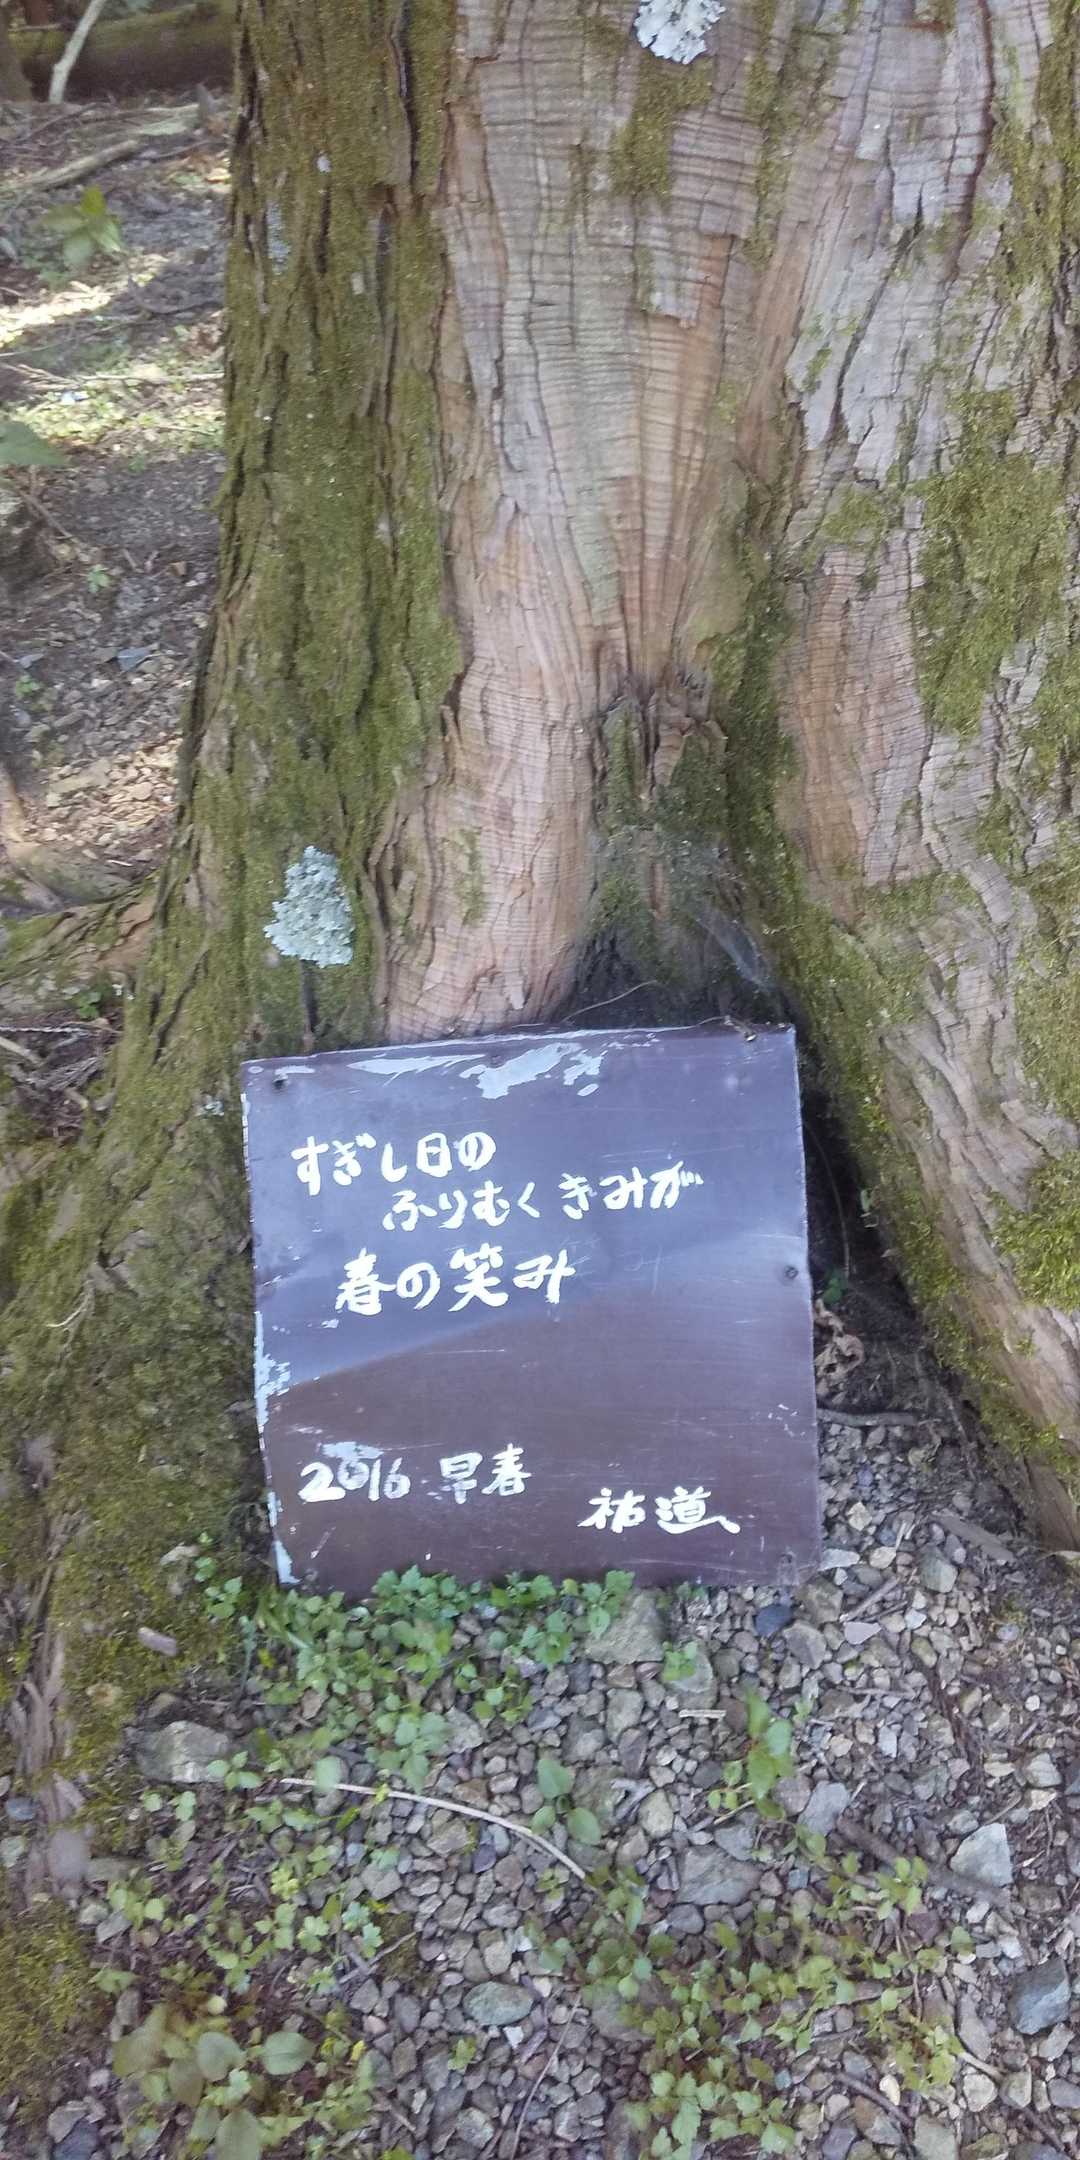 すぎし日の
ふりむくきみが
春の笑み
2016 早春
祐道